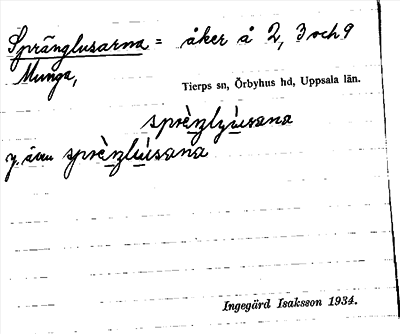 Språnglusarna = åker å 2, 3 och 9
Munga,
Tierps sn, Örbyhus hd, Uppsala län.
sprèŋlyu̇sana
y. även sprèŋlu̇sana
Ingegärd Isaksson 1934.